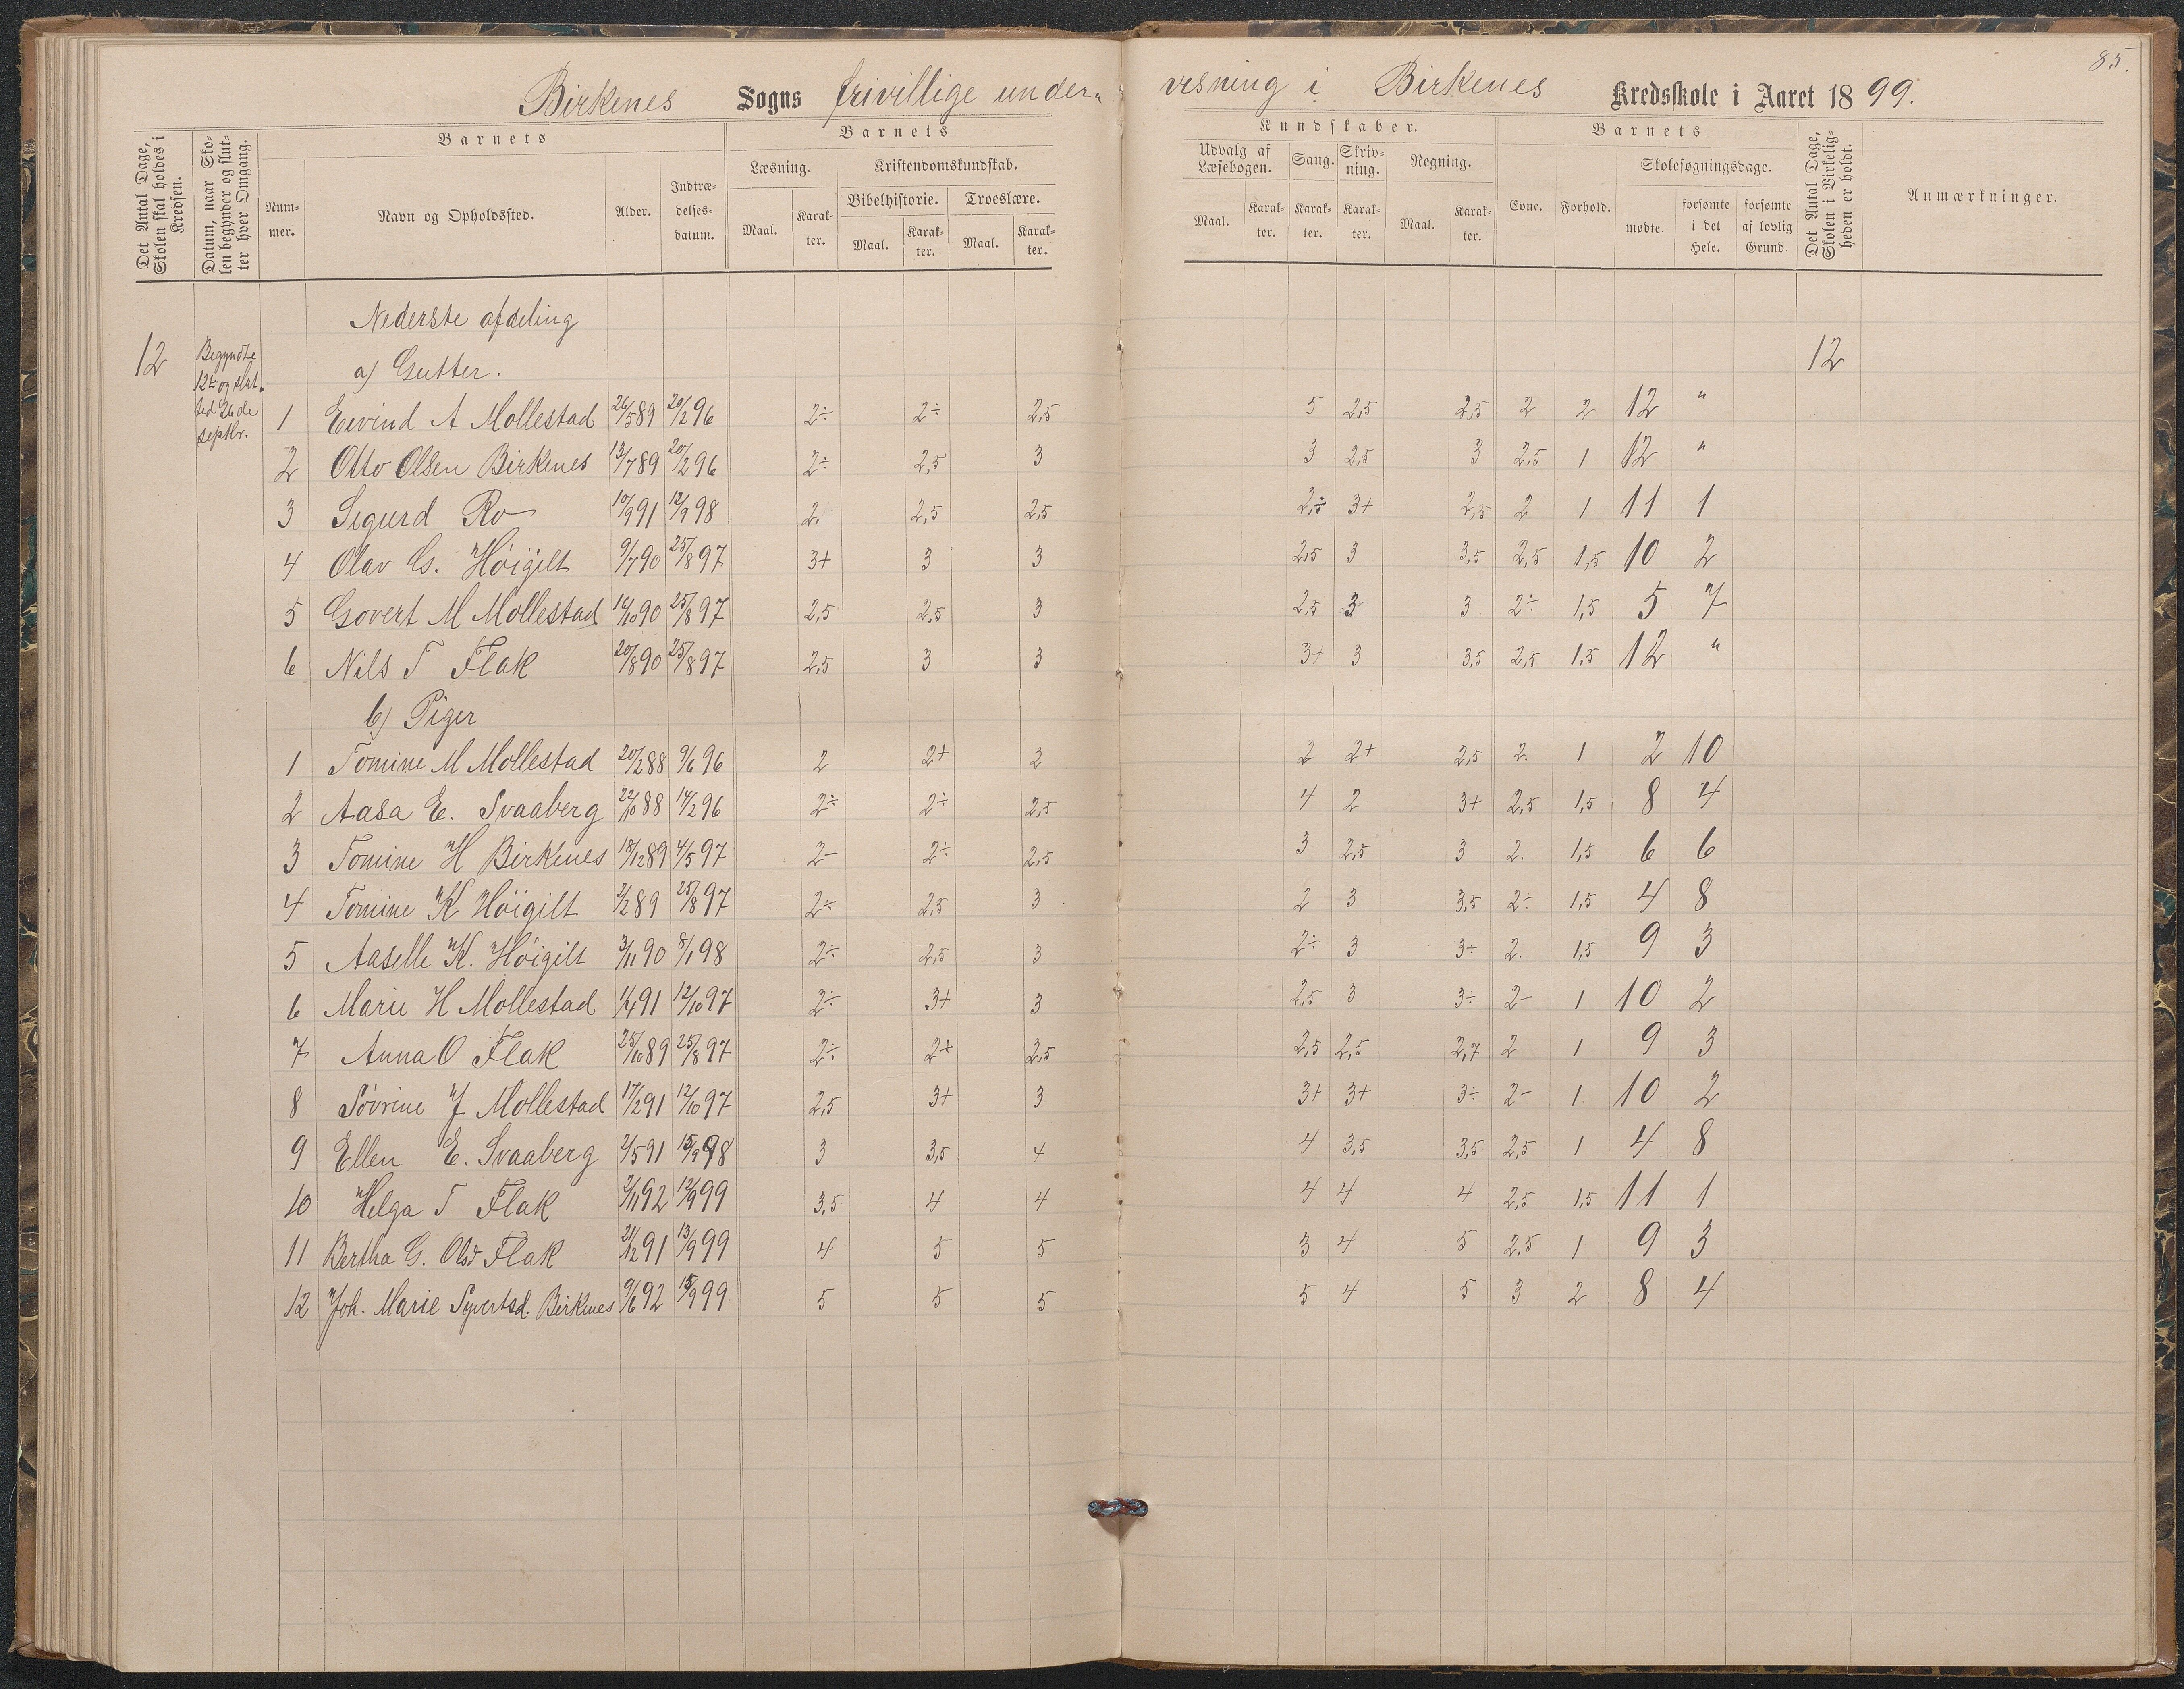 85.
Birkenes Sogns frivillige under- visning i Birkenes Kredsskole i Aaret 1899.
Det Antal Dage, Skolen skal holdes i Kredsen.
Datum, naar Skolen begynder og slutter hver Omgang.
Barnets
Nummer.
Navn og Opholdssted.
Alder.
Indtrædelsesdatum.
Barnets
Læsning.
Maal.
Karakter.
Kristendomskundskab.
Bibelhistorie.
Maal.
Karakter.
Troeslære.
Maal.
Karakter.
Kundskaber.
Udvalg af Læsebogen.
Maal.
Karakter.
Sang.
Karakter.
Skrivning.
Karakter.
Regning.
Maal.
Karakter.
Barnets
Evne.
Forhold.
Skolesøgningsdage.
mødte.
forsømte i det Hele.
forsømte af lovlig Grund.
Det Antal Dage, Skolen i Virkeligheden er holdt.
Anmærkninger.
Nederste afdeling
12 Begyndte 12te og slut- ted 26de septbr. a) Gutter. 12
1 Eivind A Mollestad 26/5 89 20/2 96 2÷ 2÷ 2,5 5 2,5 2,5 2 2 12 "
2 Otto Olsen Birkenes 13/7 89 20/2 96 2÷ 2,5 3 3 2,5 3 2,5 1 12 "
3 Sigurd Ro 10/9 91 12/9 98 2. 2,5 2,5 2,÷ 3+ 2,5 2 1 11 1
4 Olav G. Höigilt 9/7 90 25/8 97 3+ 3 3 2,5 3 3,5 2,5 1,5 10 2
5 Govert M Mollestad 16/10 90 25/8 97 2,5 2,5 3 2,5 3 3 2÷ 1,5 5 7
6 Nils T Flak 20/8 90 25/8 97 2,5 3 3 3+ 3 3,5 2,5 1,5 12 "
b) Piger
1 Tomine M Mollestad 20/2 88 9/6 96 2 2+ 2 2 2+ 2,5 2. 1 2 10
2 Aasa E. Svaaberg 22/10 88 14/2 96 2÷ 2÷ 2,5 4 2 3+ 2,5 1,5 8 4
3 Tomine H Birkenes 18/12 89 4/5 97 2- 2÷ 2,5 3 2,5 3 2. 1,5 6 6
4 Tomine K Höigilt 2/2 89 25/8 97 2÷ 2,5 3 2 3 3,5 2÷ 1,5 4 8
5 Aaselle K. Höigilt 3/11 90 8/1 98 2÷ 2,5 3 2÷ 3 3÷ 2. 1,5 9 3
6 Marie H Mollestad 1/4 91 12/10 97 2÷ 3+ 3 2,5 3 3÷ 2- 1 10 2
7 Anna O Flak 25/10 89 25/8 97 2÷ 2+ 2,5 2,5 2,5 2,7 2 1 9 3
8 Sövrine J Mollestad 17/2 91 12/10 97 2,5 3+ 3 3+ 3+ 3÷ 2- 1. 10 2
9 Ellen E. Svaaberg 2/5 91 15/9 98 3 3,5 4 4 3,5 3,5 2,5 1 4 8
10 Helga T Flak 2/11 92 12/9 99 3,5 4 4 4 4 4 2,5 1,5 11 1
11 Bertha G. Olsd Flak 21/12 91 13/9 99 4 5 5 3 4 5 2,5 1 9 3
12 Joh. Marie Syvertsd. Birkenes 9/6 92 15/9 99 5 5 5 5 4 5 3 2 8 4